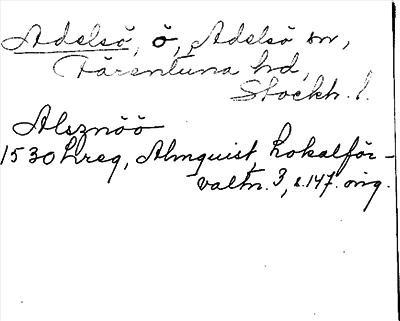 Adelsö, ö, Adelsö sn,
Färentuna hd,
Stockh. l.
Alsznöö
1530 Lreg, Almquist, Lokalför-
valtn. 3, s. 147. orig.